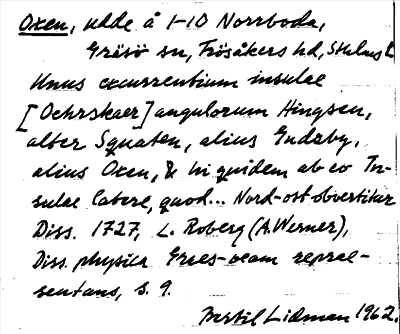 Oxen, udde å 1-10 Norrboda,
Gräsö sn, Frösåkers hd, Sthlms l.
Unus excurrentium insulae
[Oehrskaer] angulorum Hingsen,
alter Squaten, alius Gudsby,
alius Oxen, & hi quidem ab eo In-
sulae latere, quod... Nord-ost obvertitur
Diss. 1727, L. Roberg (A. Werner),
Diss. physica Grees-oeam reprae-
sentans, s. 9.
Bertil Lidman 1962.